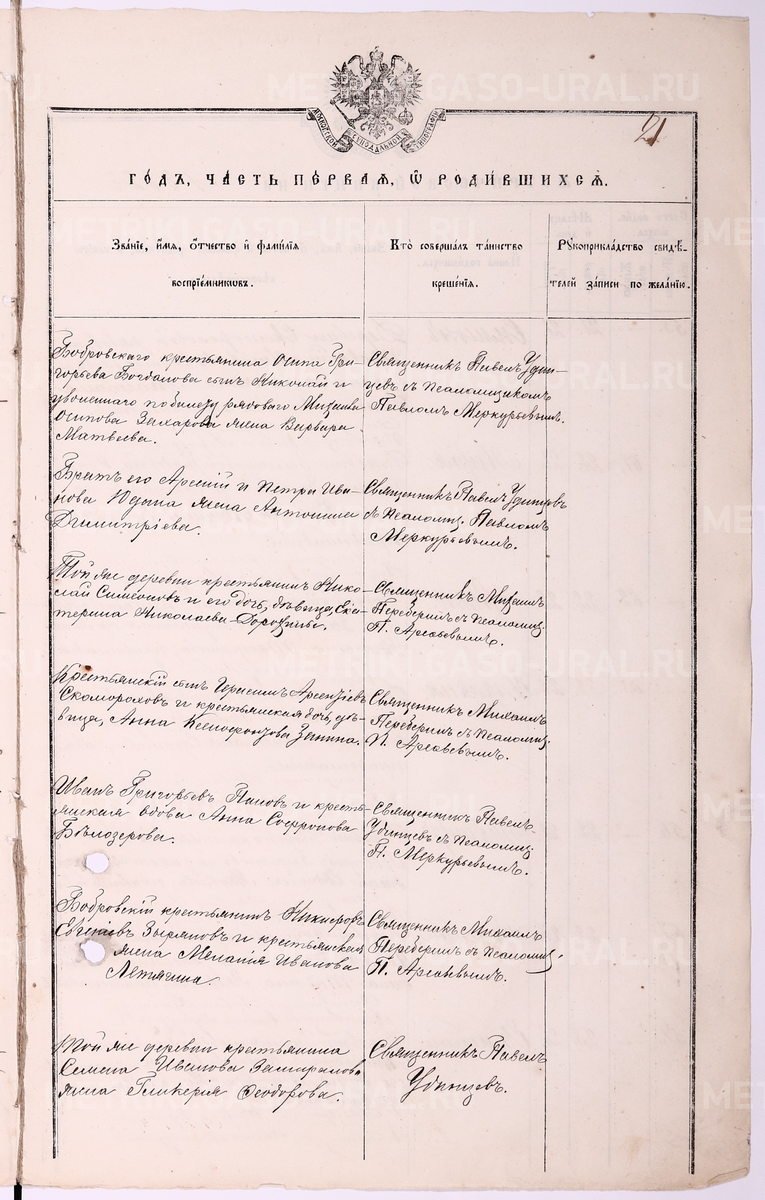 METRIKI.GASO-URAL.RU
21
ГОДЪ, ЧАСТЬ ПЕРВАЯ, Ѿ РОДИВШИХСЯ.
Званіе, имя, отчество и фамилія
воспріемниковъ.
Кто совершалъ таинство
крещенія.
Рукоприкладство свидѣ-
телей записи по желанію.
Бобровскаго крестьянина Осипа Гри-
горьева Богданова сынъ Николай и
уволеннаго по билету рядового Михаила
Осипова Захарова жена Варвара
Матвѣева.
Священникъ Павелъ Удин-
цевъ съ псаломщикомъ
Павломъ Меркурьевымъ.
Братъ его Арсеній и Петра Ива-
нова Юдина жена Антонина
Димитріева.
Священникъ Павелъ Удинцевъ
съ псаломщ. Павломъ
Меркурьевымъ.
Той же деревни крестьянинъ Нико-
лай Симеоновъ и его дочь, дѣвица, Ека-
терина Николаева
Священникъ Михаилъ
Переберинъ съ псаломщ.
П. Арефьевымъ.
Крестьянскій сынъ Герасимъ Арсеніевъ
Скомороховъ и крестьянская дочь, дѣ-
вица, Анна Ксенофонтова Зырина.
Священникъ Михаилъ
Переберинъ съ псаломщ.
П. Арефьевымъ.
Иванъ Григорьевъ Пановъ и кресть-
янская вдова Анна Софронова
Бѣлозерова.
Священникъ Павелъ
Удинцевъ съ псаломщ.
П. Меркурьевымъ.
Бобровскій крестьянинъ Никифоръ
Евгеніевъ Зыряновъ и крестьянская
жена Меланія Иванова
Летягина.
Священникъ Михаилъ
Переберинъ съ псаломщ.
П. Арефьевымъ.
Той же деревни крестьянина
Семена Иванова
жена Гликерія Ѳеодорова.
Священникъ Павелъ
Удинцевъ.